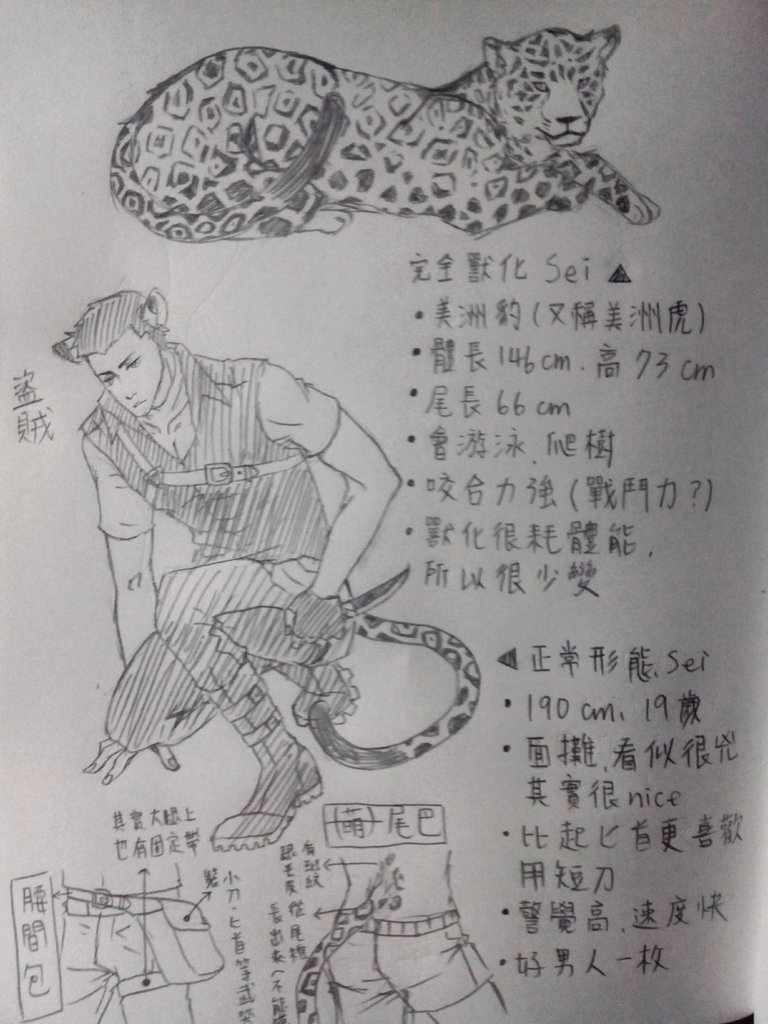 完全獸化 Sei ▲
•美洲豹(又稱美洲虎)
•體長146cm.高73cm
•尾長66cm
•會游泳、爬樹
•咬合力強(戰鬥力?)
•獸化很耗體能,
所以很少變
盜賊
◀正常形態,Sei
•190cm、19歲
•面攤,看似很兇
其實很nice
•比起匕首更喜歡
用短刀
•警覺高,速度快
•好男人一枚
其實大腿上
也有固定帶
腰間包
小刀、匕首等武器
(萌)尾巴
有斑紋